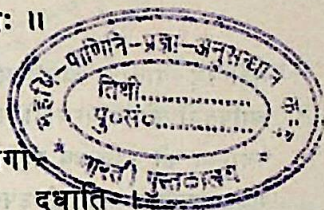 ः ॥
महर्षि-पाणिनि-प्रज्ञा-अनुसन्धान केन्द्र
तिथी..............
पु०सं०..............
भारती पुस्तकालय
गो-
दधाति-।